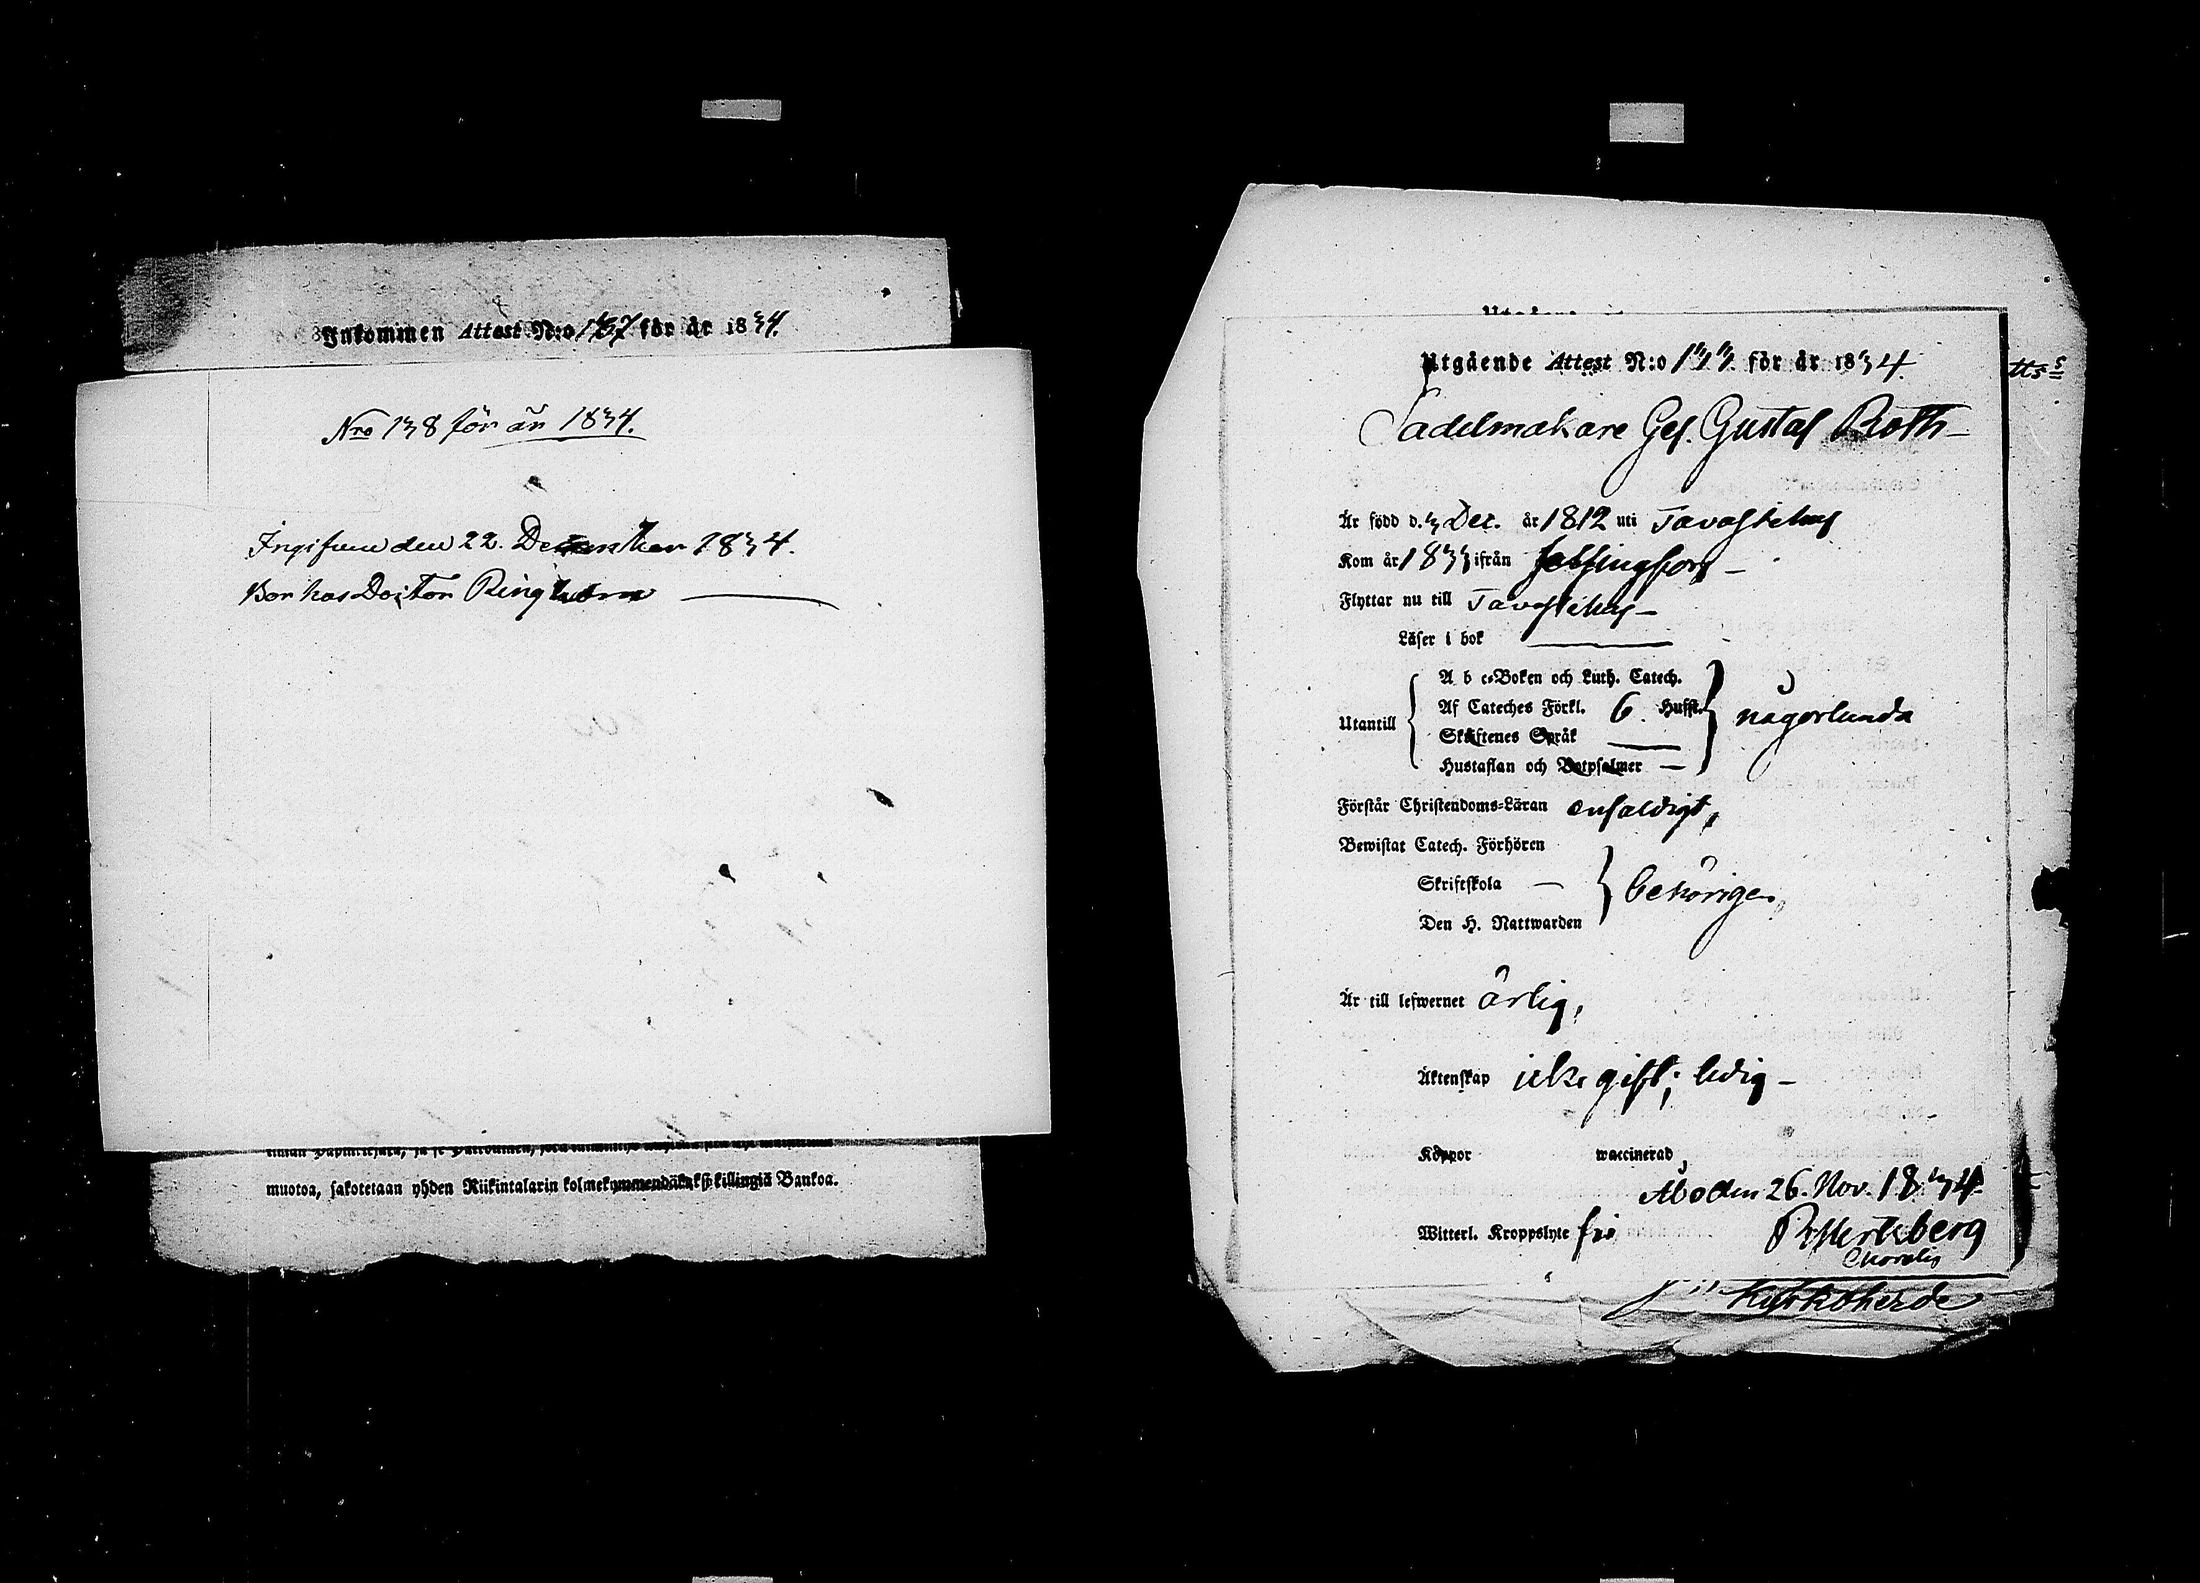 Inkommen Attest N:o 137 för år 1834.
Nro 138 för år 1834.
Ingifven den 22. December 1834.
Bor hos Doctor Ringbom
muotoa, sakotetaan yhden Riikintalarin kolmekymmendäkaksi killingiä Bankoa.
Utgående Attest N:o 133. för år 1834.
Sadelmakare Ges. Gustaf Roth
Är född d. 3 Dec. år 1812 uti Tavastehus
Kom år 1833 ifrån Helsingfors
Flyttar nu till Tavastehus
Läser i bok
A b c-Boken och Luth. Catech.
Af Cateches Förkl. 6. Hufst.
Utantill någorlunda
Skriftenes Språk
Hustaflan och Botpsalmer
Förstår Christendoms-Läran enfaldigt,
Bewistat Catech. Förhören
Skriftskola behörigen,
Den H. Nattwarden
Är till lefwernet ärlig,
Äktenskap icke gift; ledig
Koppor waccinerad
Åbo den 26. Nov. 1834.
Witterl. Kroppslyte fri Hertzberg
Kyrkoherde